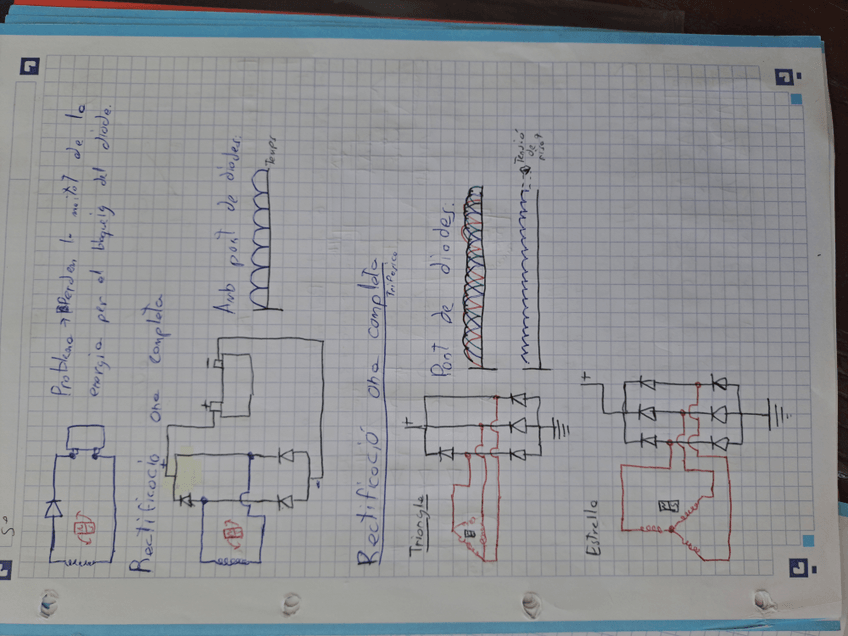 Problema → Perdem la meitat de la
energia per el bloqueig del díode.
Rectificació ona completa
+
+
-
-
Amb pont de díodes.
Temps
Rectificació ona completa
Trifasica
Triangle
+
Pont de díodes.
Tensió
de
Estrella
+